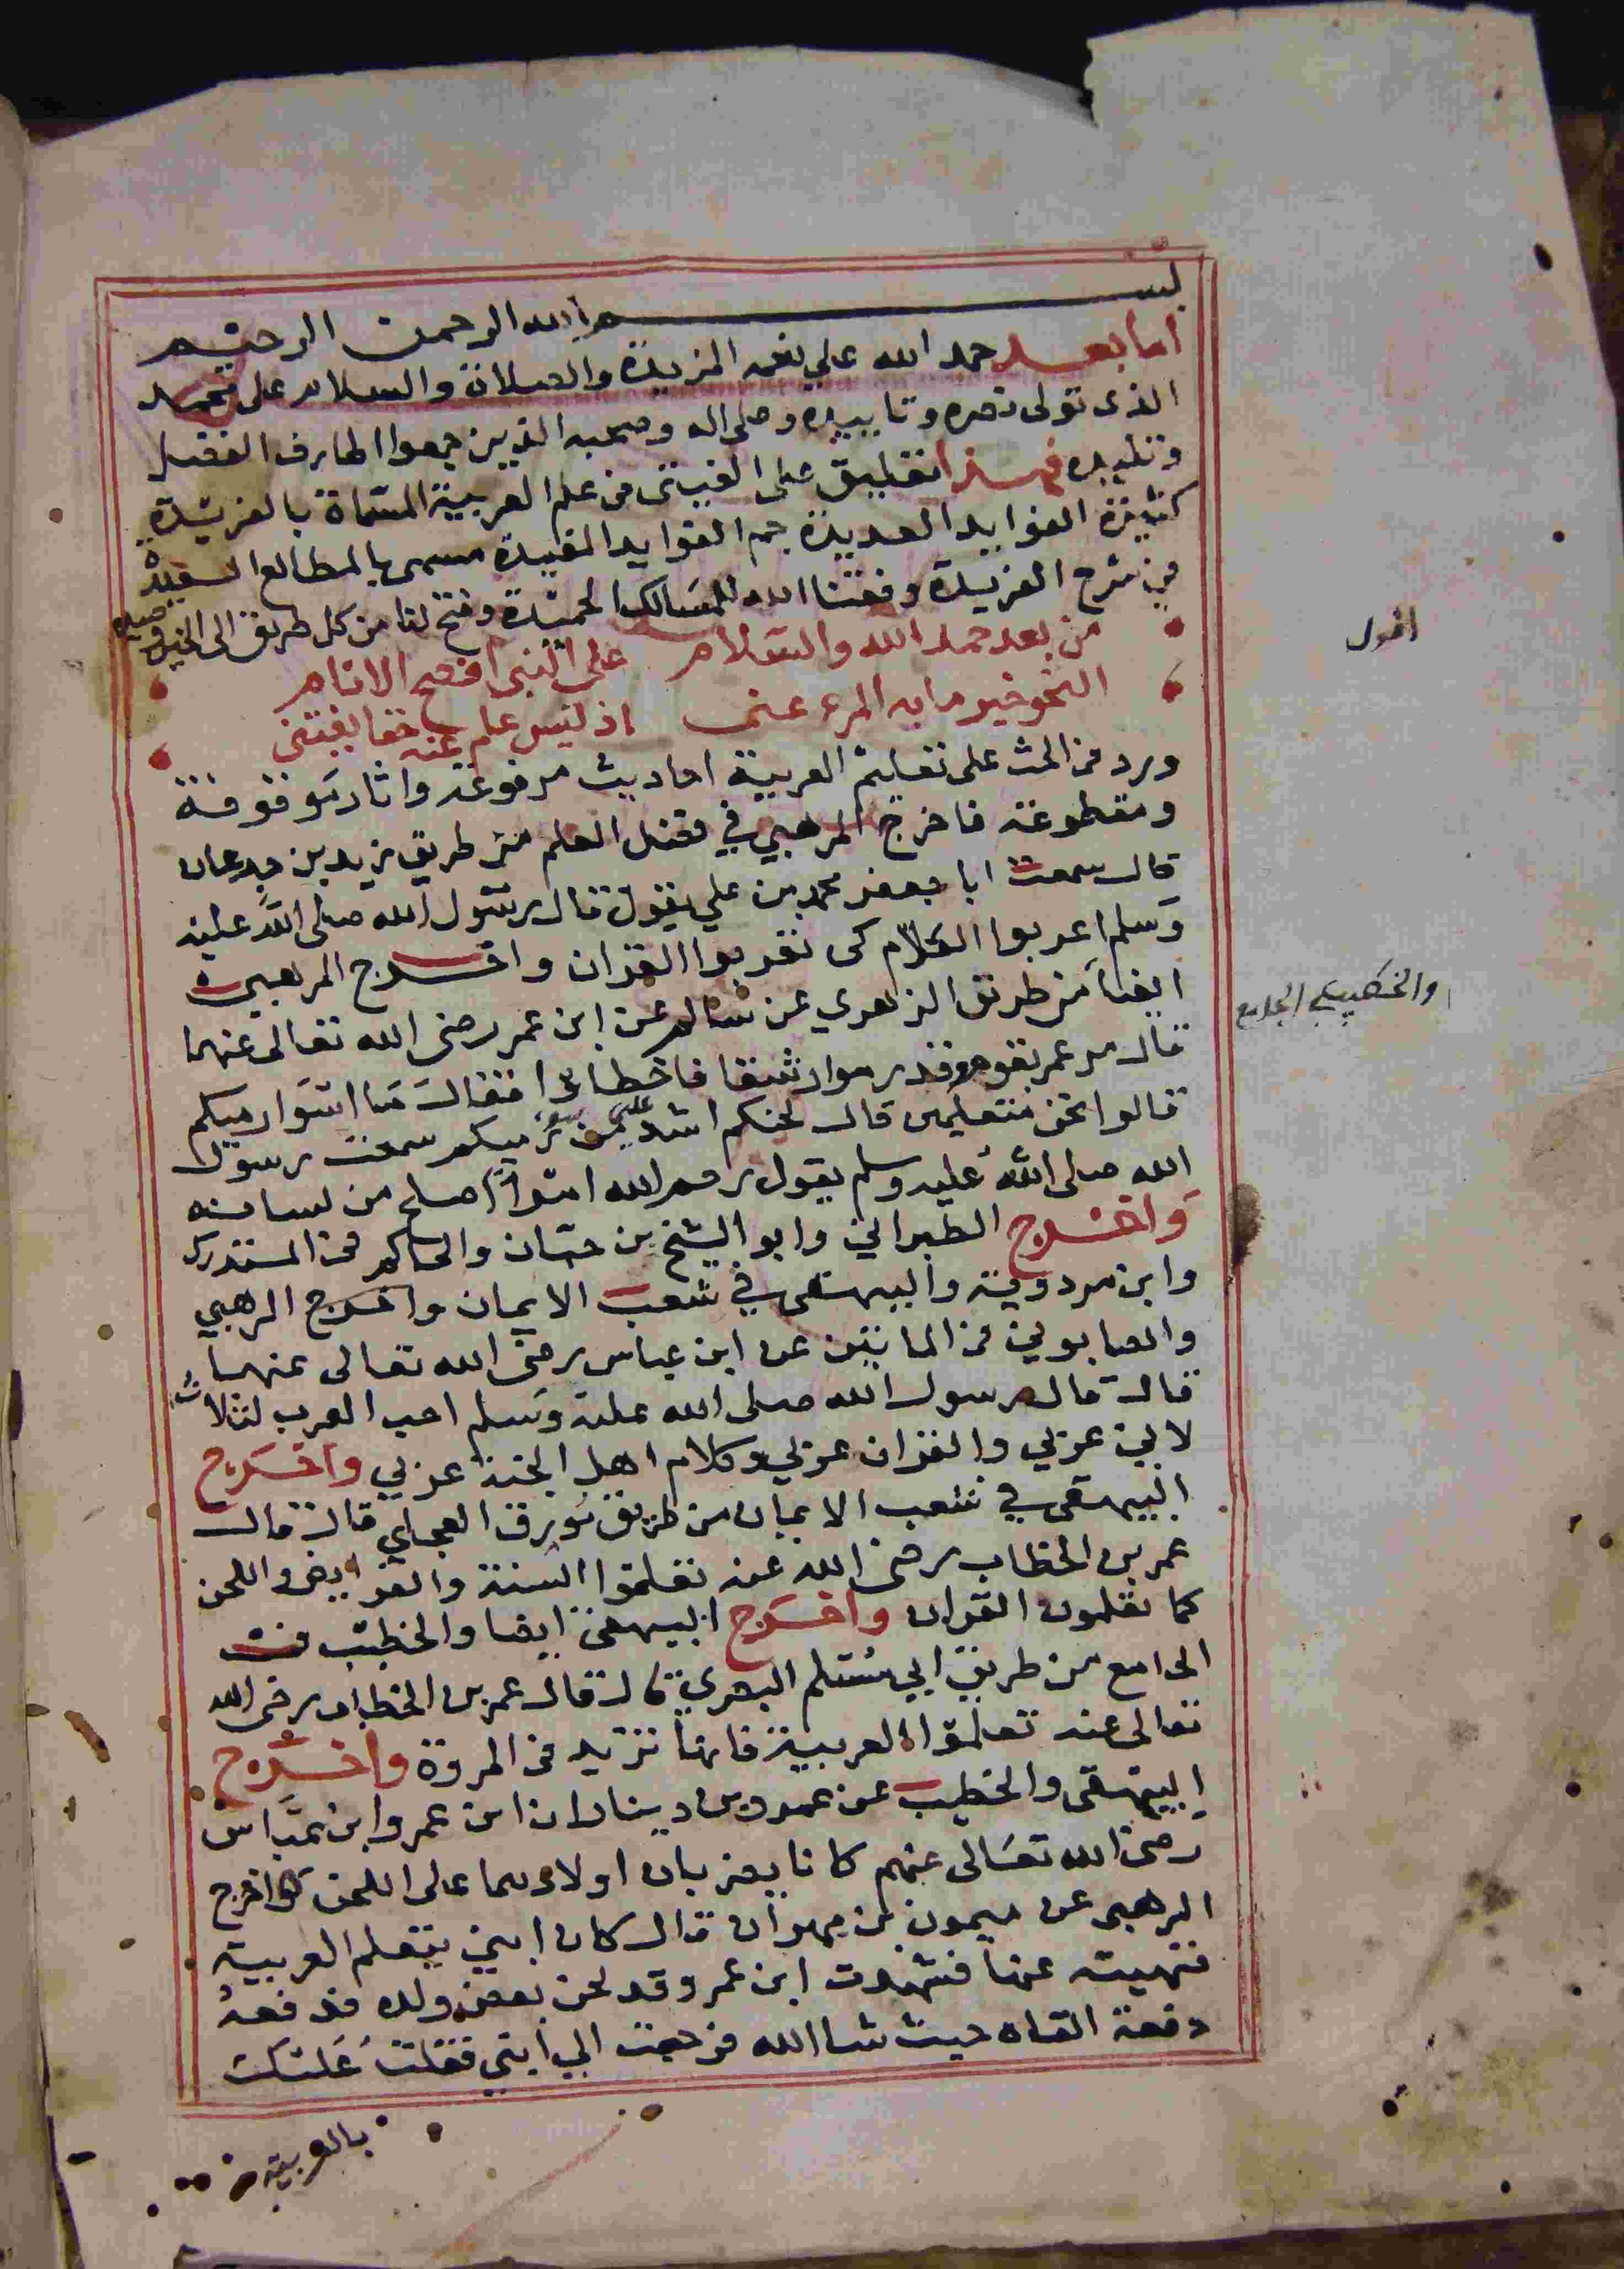 بسم الله الرحمن الرحيم
اما بعد حمد الله علي نعمه المزيدة والصلاة والسلام على محمد
الذى تولى نصره وتاييده وعلى اله وصحبه الذين جمعوا الطارف الفضل
وتليده فهذا تعليق على الفيتى فى علم العربية المسماة بالفريدة
كثيرة الفوايد العديدة جم الفوايد المفيدة مسمى بالمطالع السعيدة
في شرح الفريدة وفقنا الله للمسالك الحميدة وفتح لنا من كل طريق الى الخير وصيده
من بعد حمد الله والسلام على النبى افصح الانام
النحو خير ما به المرء عنى اذ ليس علم عنه حقا يغتنى
ورد فى الحث على تعليم العربية احاديث مرفوعة واثار موقوفة
ومقطوعة فاخرج المرهبي في فضل العلم من طريق يزيد بن جدعان
قال سمعت ابا جعفر محمد بن علي يقول قال رسول الله صلى الله عليه
وسلم اعربوا الكلام كى تعربوا القران واخرج المرهبي
ايضا من طريق الزهري عن سالم عن ابن عمر رضى الله تعالى عنهما
قال مر عمر بقوم قد رموا رشقا فاخطاوا فقال ما اسوا رميكم
قالوا نحن متعليمن قال لحنكم اشد علي من سو رميكم سمعت رسول
الله صلى الله عليه وسلم يقول رحم الله امراً اصلح من لسانه
واخرج الطبراني وابو الشيخ بن حبان والحاكم فى المستدرك
وابن مردويه والبيهقى في شعب الايمان واخرج المرهبي
والصابوني فى الماتين عن ابن عباس رضى الله تعالى عنهما
قال قال رسول الله صلى الله عليه وسلم احب العرب لثلاث
لاني عربي والقران عربي وكلام اهل الجنة عربي واخرج
البيهقى في شعب الايمان من طريق مورق العجلي قال قال
عمر بن الخطاب رضى الله عنه تعلموا السنة والفرايض واللحن
كما تعلمون القران واخرج البيهقى ايضا والخطيب فى
الجامع من طريق ابي مسلم البصري قال قال عمر بن الخطاب رضى الله
تعالى عنه تعلموا العربية فانها تزيد فى المروة واخرج
البيهقى والخطيب عن عمرو بن دينار ان ابن عمر وابن عباس
رضى الله تعالى عنهم كانا يضربان اولادهما على اللحن واخرج
المرهبى عن ميمون بن مهران قال كان ابني يتعلم العربية
فنهيته عنها فشهدت ابن عمر وقد لحن بعض ولده فدفعه
دفعة القاه حيث شا الله فرجعت الي ابني فقلت عليك
بالعربية
اقول
والخطيب في الجامع